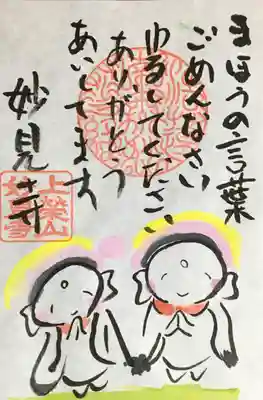 まほうの言葉
ごめんなさい
ゆるしてください
ありがとう
あいしてます
妙見寺